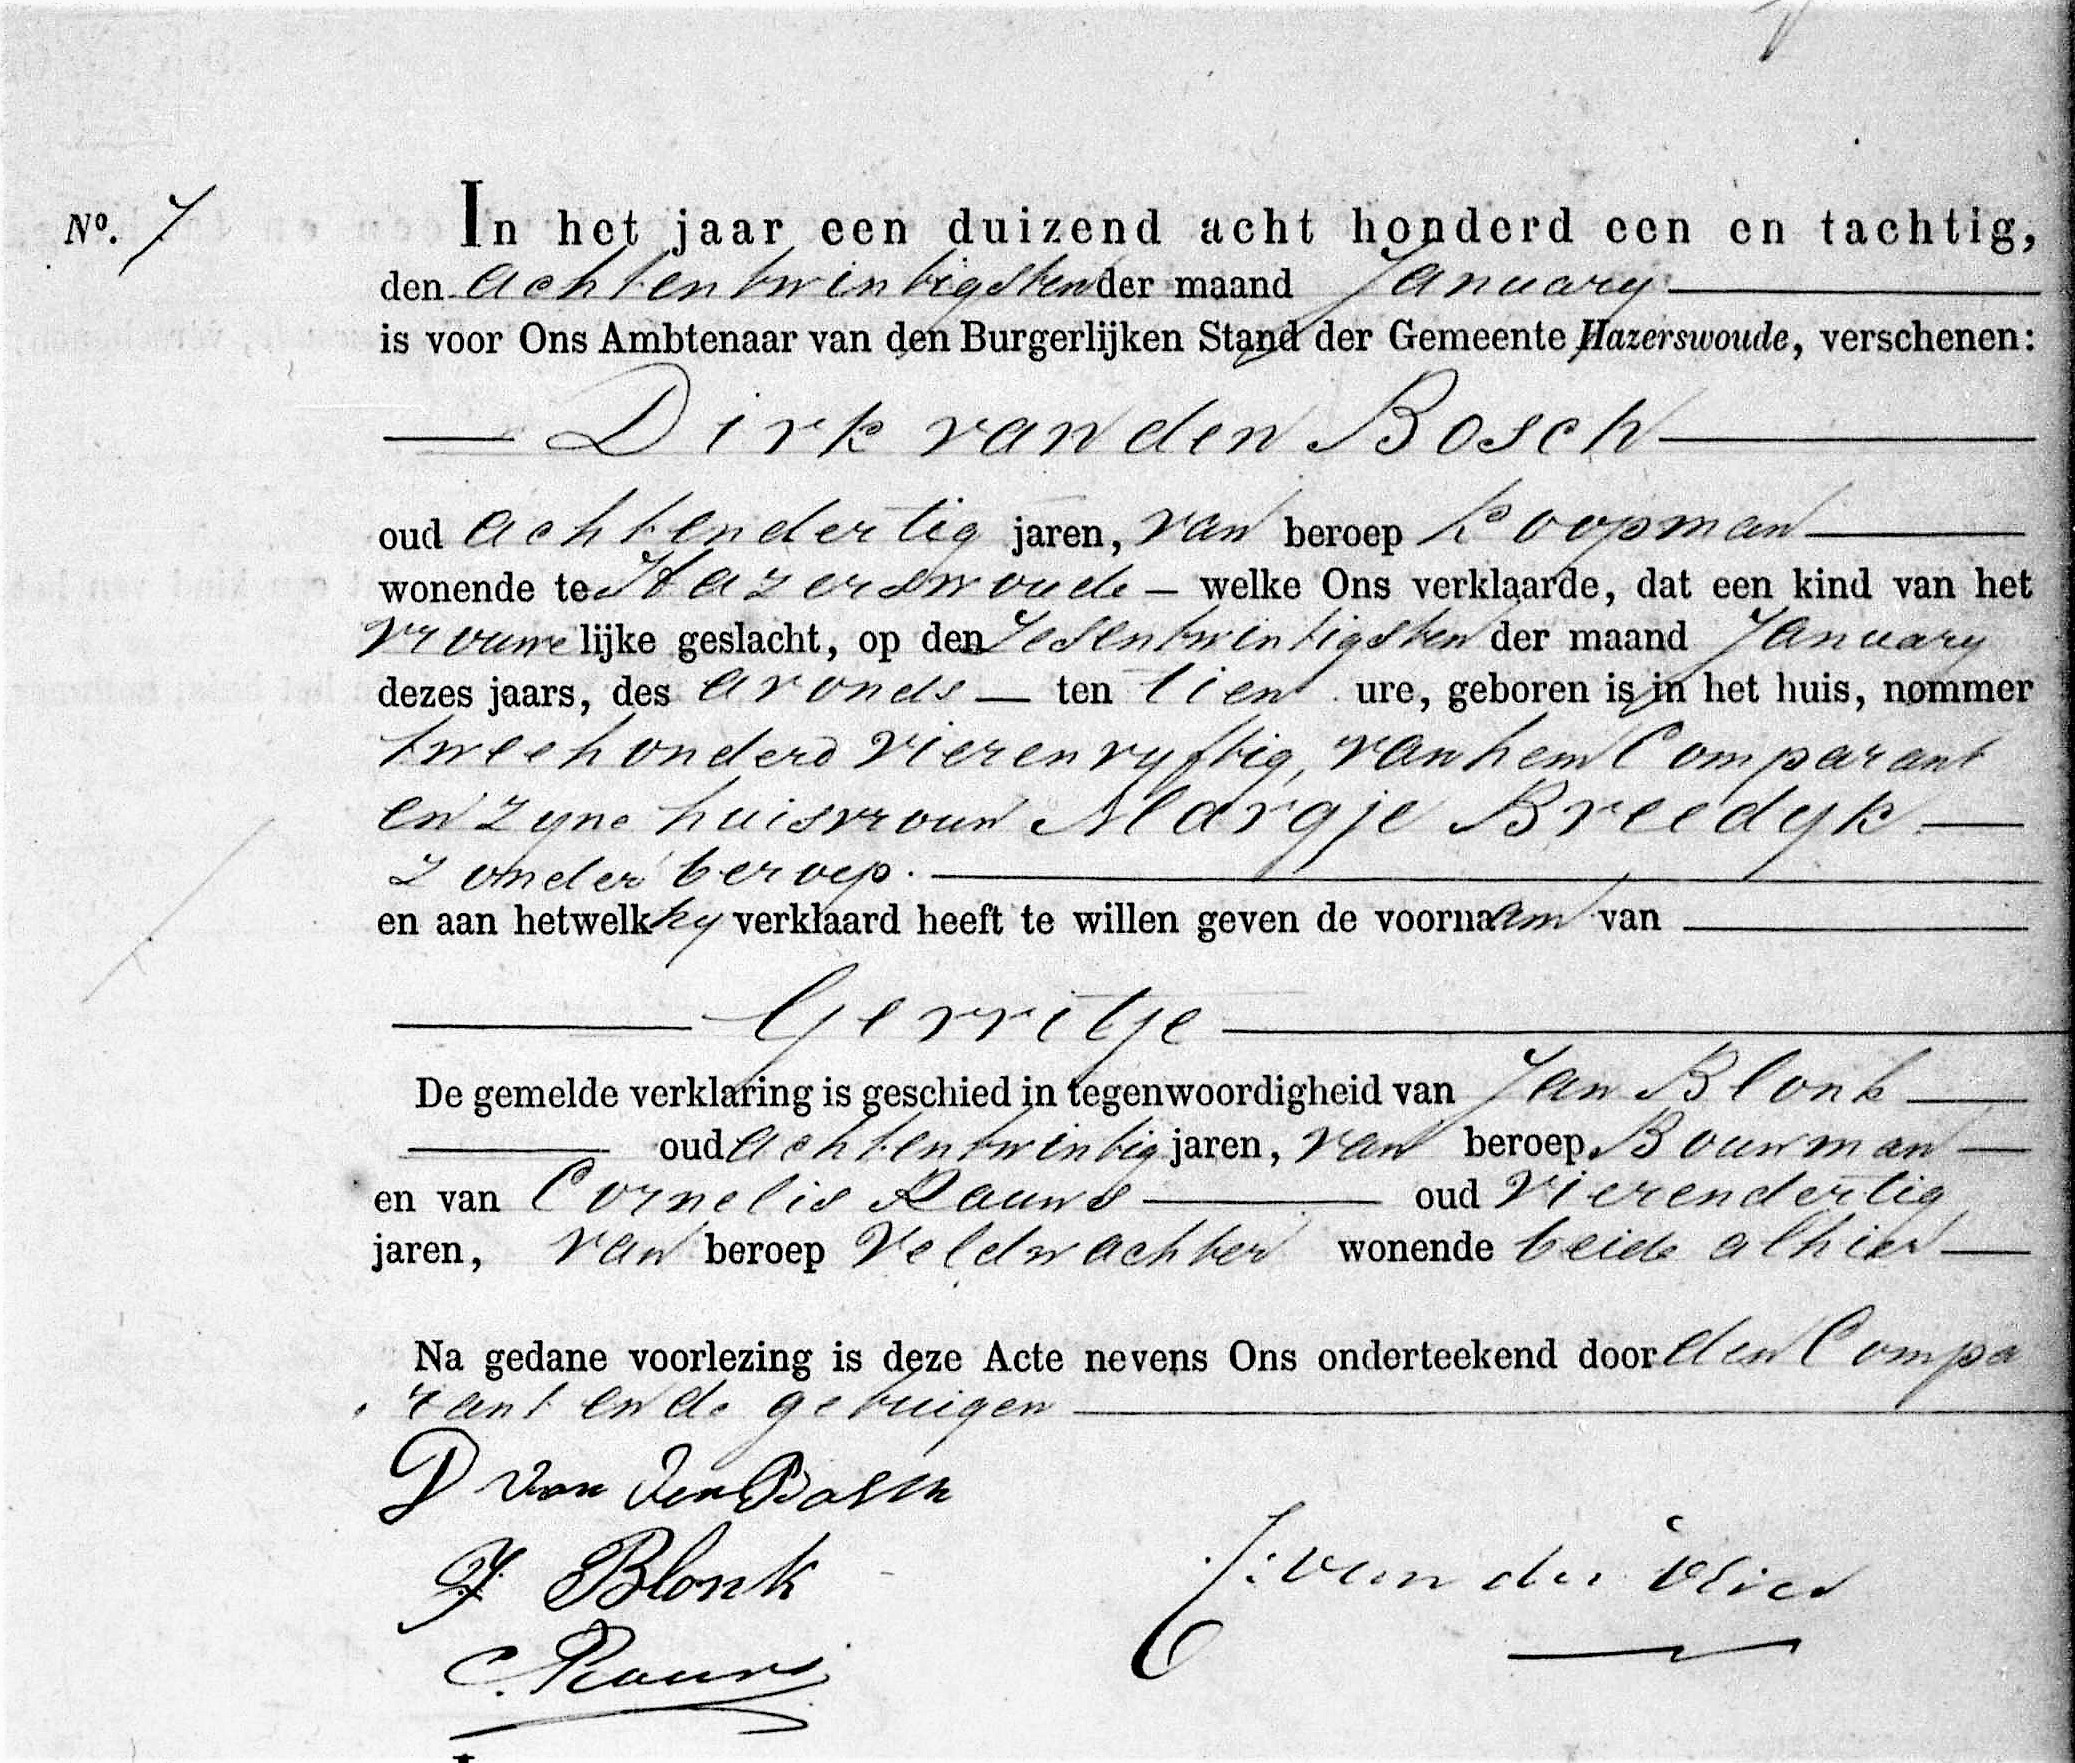 No. 7
In het jaar een duizend acht honderd een en tachtig,
den achtentwintigsten der maand January
is voor Ons Ambtenaar van den Burgerlijken Stand der Gemeente Hazerswoude, verschenen:
Dirk van den Bosch
oud achtendertig jaren, van beroep koopman
wonende te Hazerswoude – welke Ons verklaarde, dat een kind van het
vrouwelijke geslacht, op den zesentwintigsten der maand January
dezes jaars, des avonds – ten tien ure, geboren is in het huis, nommer
tweehonderd vierenvyftig, van hem Comparant
en zyne huisvrouw Margje Breedyk –
zonder beroep.
en aan hetwelk hy verklaard heeft te willen geven de voornaam van
Gerritje
De gemelde verklaring is geschied in tegenwoordigheid van Jan Blonk
oud achtentwintig jaren, van beroep Bouwman
en van Cornelis Rauws oud vierendertig
jaren, van beroep Veldwachter wonende beide alhier
Na gedane voorlezing is deze Acte nevens Ons onderteekend door den Compa
rant en de getuigen
D van den Bosch
J Blonk
C. Rauws
J. van der